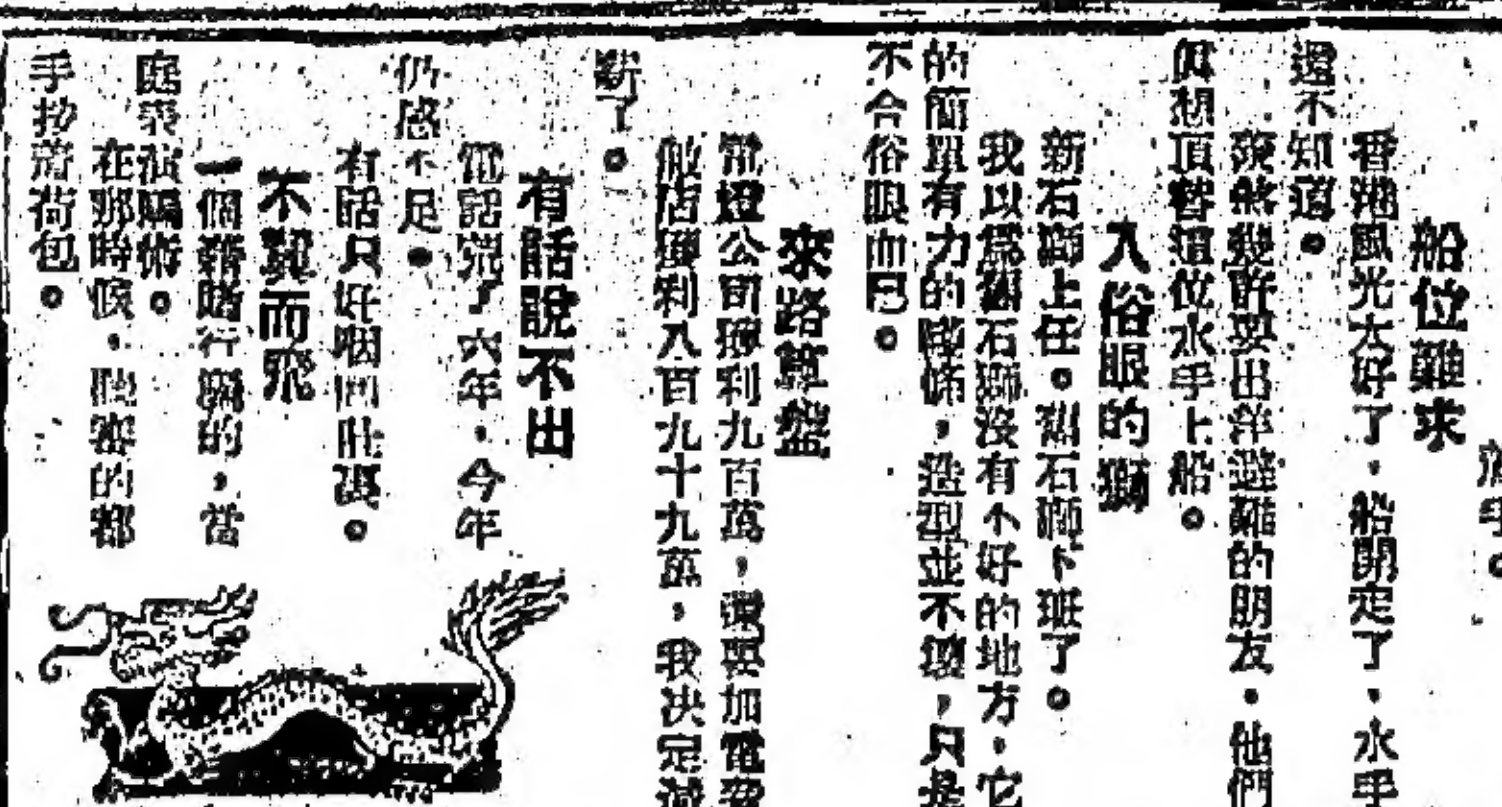 手。
船位難求
香港風光太好了，船開定了，水手
還不知道。
羨煞幾許要出洋避難的朋友，他們
眞想頂替這位水手上船。
入俗眼的獅
新石獅上任。舊石獅下班了。
我以爲舊石獅沒有不好的地方，它
的簡單有力的線條，造型並不壞，只是
不合俗眼而已。
來路算盤
電燈公司獲利九百萬，還要加電費
敝店獲利八百九十九萬，我决定減
薪了。
有話說不出
電話兇了六年，今年
仍感不足。
有話只好咽回肚裏。
不翼而飛
一個賭行騙的，當
庭表演騙術。
在那時候，聽審的都
手抄荷包。